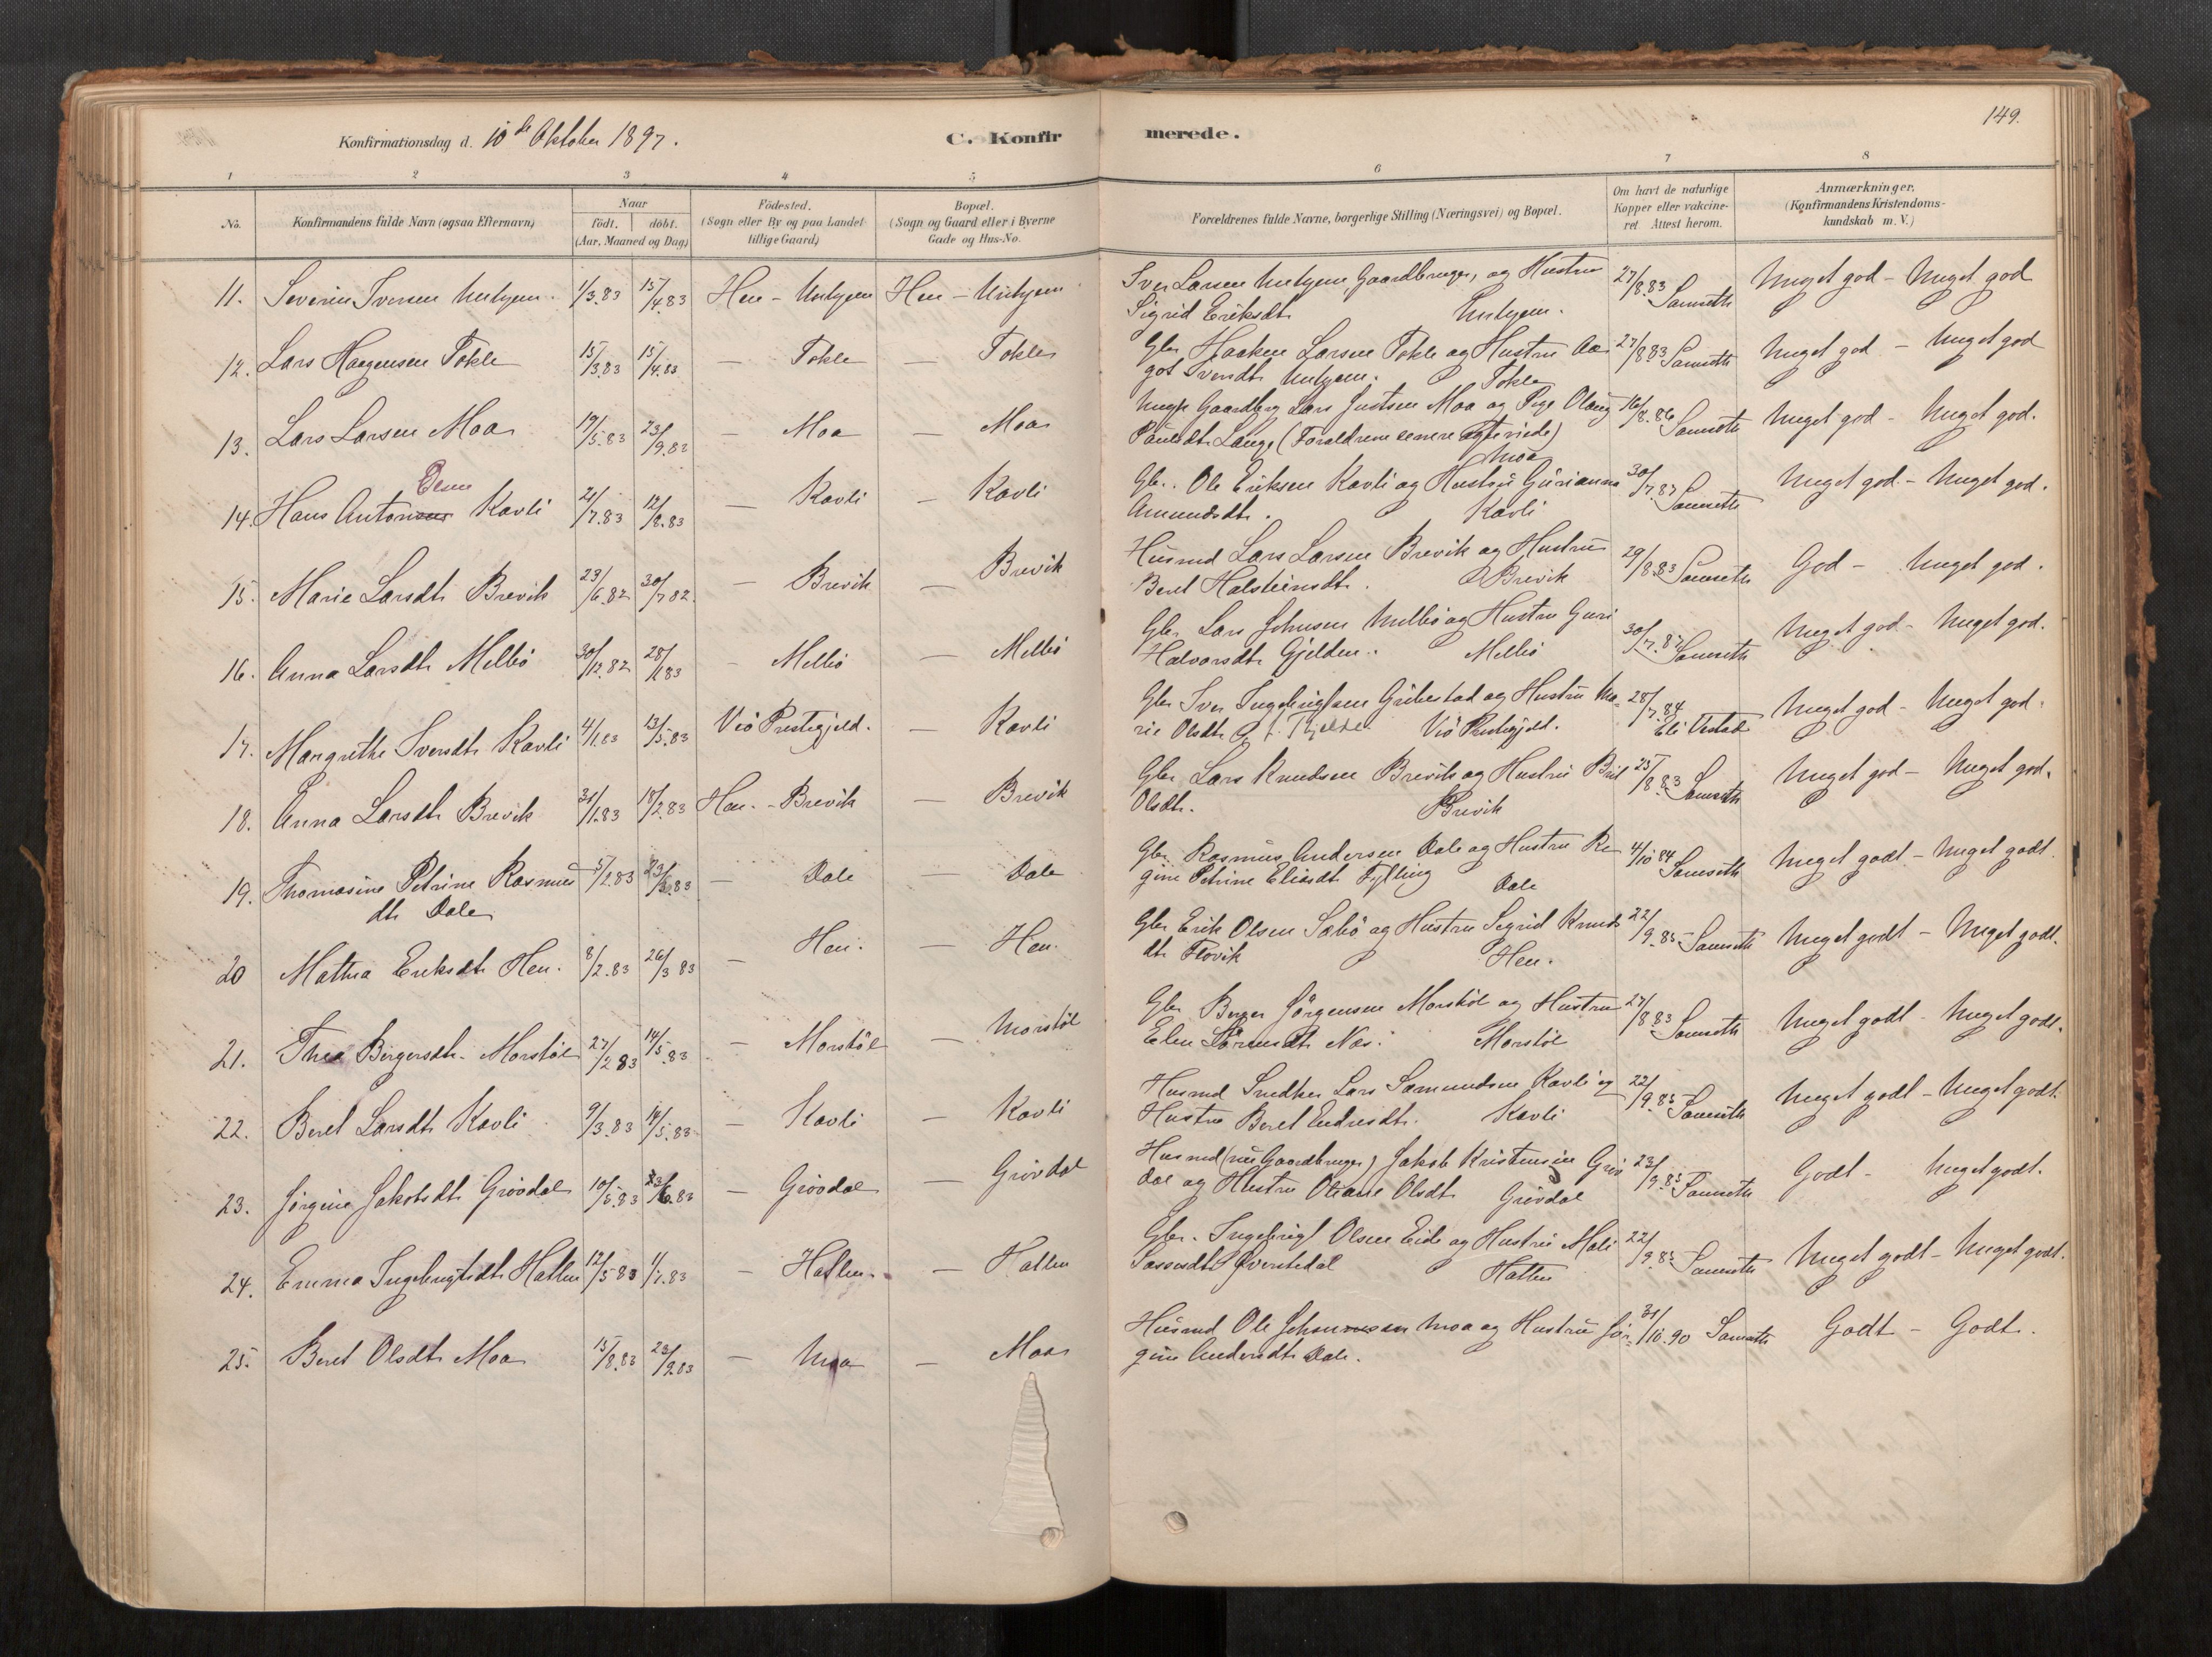 149.
Konfirmationsdag d. 10de Oktober 1897.
C. Konfirmerede.
1 2 3 4 5 6 7 8
No. Konfirmandens fulde Navn (ogsaa Efternavn) Naar födt. döbt. (Aar, Maaned og Dag) Födested. (Sogn eller By og paa Landet tillige Gaard) Bopæl. (Sogn og Gaard eller i Byerne Gade og Hus-No. Forældrenes fulde Navne, borgerlige Stilling (Næringsvei) og Bopæl. Om havt de naturlige Kopper eller vakcineret Attest herom. Anmærkninger. (Konfirmandens Kristendomskundskab m. V.)
11. Severin Iversen 1/3.83 15/4.83 Hen - Hen - Iver Larsen Gaardbruger, og Hustru 27/8.83 Meget god - Meget god
Sigrid Eriksdt.
12. Lars Haagensen Tokle 15/3.83 15/4.83 — Tokle — Tokle Gbr Haaken Larsen Tokle og Hustru Aa 27/8 83 Meget god - Meget god
got Iversdt. Tokle
13. Lars Larsen Moa 19/5.83 23/9.83 — Moa — Moa Gaardbr Lars Justsen Moa og Pige 16/8.86 Meget god - Meget god.
Paulsdt. Lange (Forældrene senere Moa
14. Hans Antonsen Olsen Kavli 21/7.83 12/8.83 — Kavli — Kavli Gbr. Ole Eriksen Kavli og Hustru Gurianna 30/7.87 Meget god - Meget god.
Amundsdt. Kavli
15. Marie Larsdt. Brevik 23/6.82 30/7 82. — Brevik — Brevik Husmd Lars Larsen Brevik og Hustru 29/8.83 God - Meget god.
Beret Halsteinsdt. Brevik
16. Anna Larsdt. Melbö 30/12.82 28/1 83 — Melbö — Melbö Gbr Lars Johnsen Melbö og Hustru Guri 30/7.87 Meget god - Meget god.
Halvorsdt. Gjelden. Melbö
17. Margrethe Iversdt. Kavli 4/1.83 13/5.83 Veö Prestegjeld. — Kavli Gbr Iver Ingebrigtsen og Hustru Ma- 28/7.84 Meget god - Meget god.
rie Olsdt. Veö Prestegjeld. Eli
18. Anna Larsdt. Brevik 31/1.83 18/2.83 Hen. - Brevik — Brevik Gbr Lars Knudsen Brevik og Hustru 25/8.83 Meget god - Meget god.
Olsdt. Brevik
19. Thomasine Petrine Rasmus 5/2.83 — Dale — Dale Gbr Rasmus Andersen Dale og Hustru Re 4/10 84 Meget godt - Meget godt.
dt. Dale gine Petrine Eliasdt. Fylling Dale
20 Mathea Eriksdt. Hen. 8/2.83 26/3 83 — Hen. — Hen. Gbr Erik Olsen Sæbö og Hustru Sigrid Knuds 22/9.85 Meget godt - Meget godt.
dt. Flovik Hen.
21. Thea Bergersdt. Morstöl 27/2 83 14/5.83 — Morstöl — Morstöl Gbr Berger Jörgensen Morstöl og Hustru 27/8 83 Meget godt - Meget godt.
Elen Næs. Morstöl
22. Beret Larsdt. Kavli 9/3.83 14/5.83 — Kavli — Kavli Husmd Snedker Lars Samundsen Kavli og 22/9.85 Meget godt - Meget godt.
Hustru Beret Endresdt. Kavli
23. Jørgine Jakobsdt. Grövdal 10/5.83 — Grövdal — Grövdal Husmd (nu Gaardbruger) Jakob Kristensen Gröv 23/9.85 Godt - Meget godt.
dal og Hustru Oliane Olsdt. Grövdal
24. Emma Ingebrigtsdt. Hatlen 12/5 83 1/7.83 — Hatlen. — Hatlen Gbr. Ingebrigt Olsen Eide og Hustru Mali 22/9.85 Meget godt - Meget godt.
Hatlen
25. Beret Olsdt. Moa 15/8.83 23/9.83 — Moa — Moa Husmd Ole Moa og Hustru Jör- 31/10.90 Godt - Godt.
gine Andersdt. Dale.